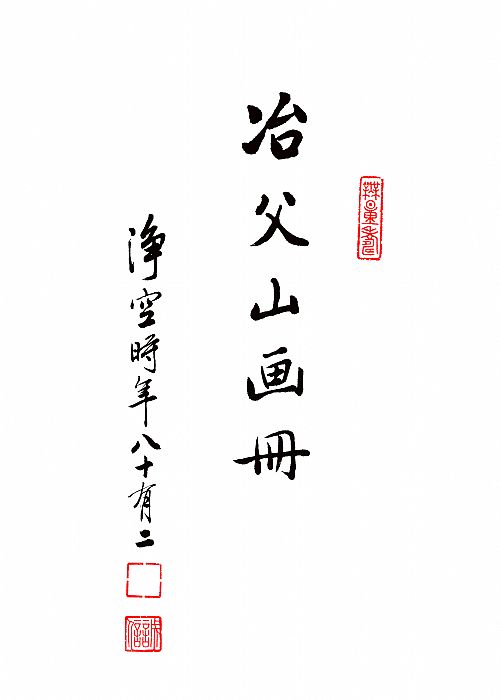 冶父山画冊
淨空時年八十有二